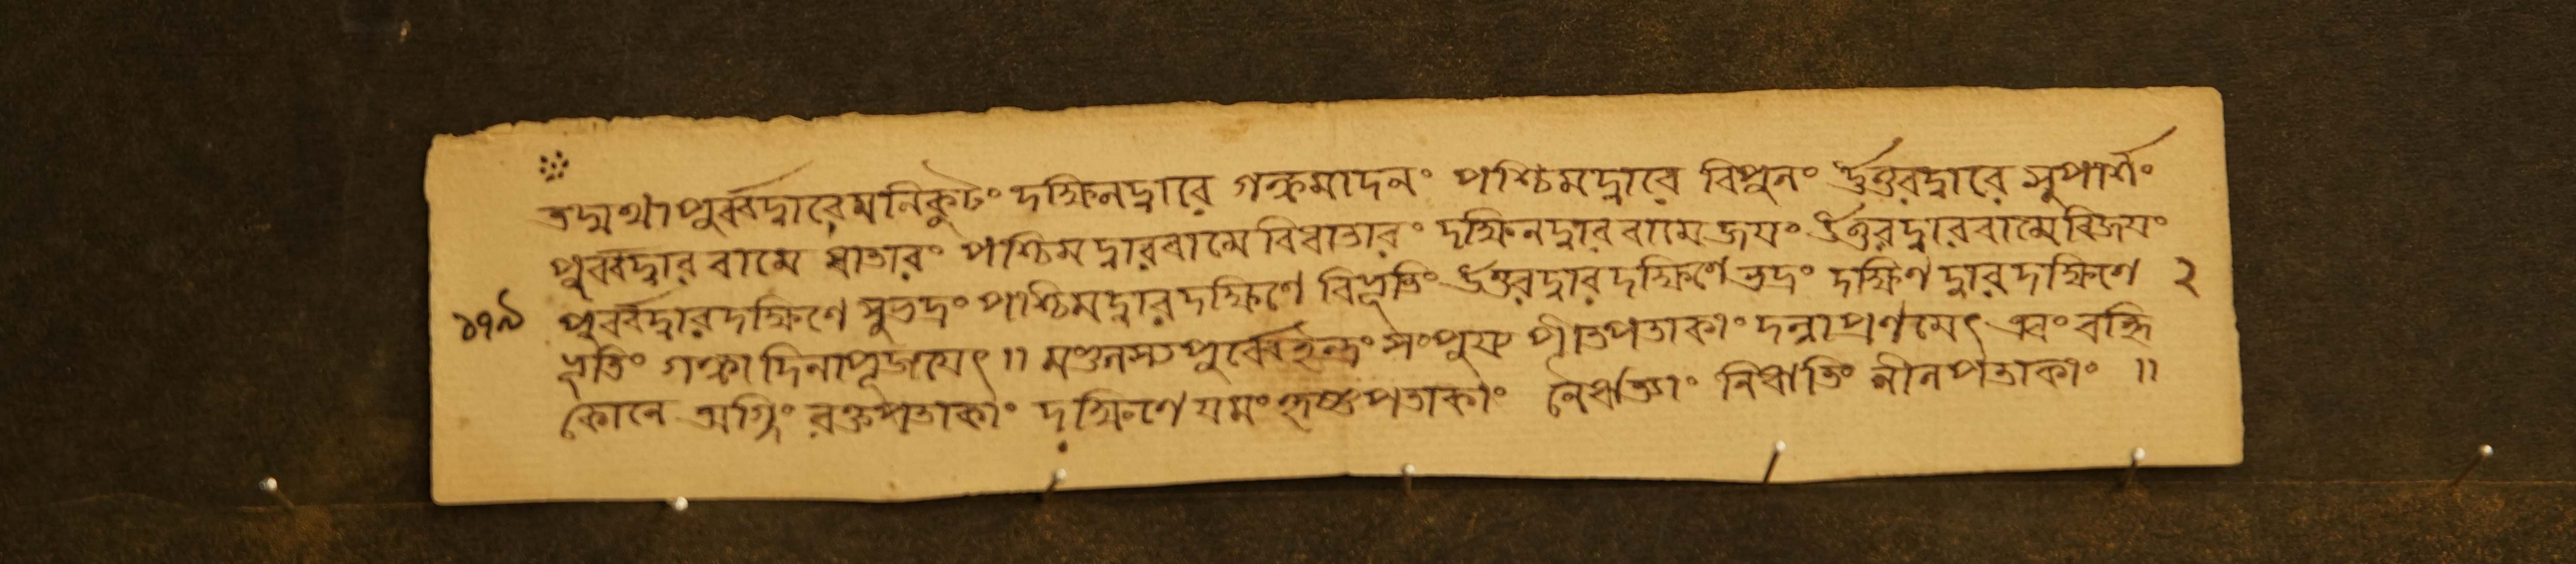 তদ্যথা পূর্ব্বদ্বারে মনিকুটং দক্ষিনদ্বারে গন্ধমাদনং পশ্চিমদ্বারে বিপুলং উত্তরদ্বারে সুপার্শং
পূর্ব্বদ্বার বামে ধাতারং পশ্চিমদ্বারবামে বিধাতারং দক্ষিনদ্বারবামে জয়ং উত্তরদ্বারবামে বিজয়ং
১৭৯ পূর্ব্বদ্বারদক্ষিণে সুভদ্রং পশ্চিমদ্বারদক্ষিণে বিভূতিং উত্তরদ্বারদক্ষিণে ভদ্রং দক্ষিণদ্বারদক্ষিণে ২
ভূতিং গন্ধাদিনা পূজয়েৎ ॥ মণ্ডলস্য পূর্ব্বে ইন্দ্রং সংপূয্য পীতপতাকাং দত্বা প্রণমেৎ এবং বহ্নি
কোনে অগ্নিং রক্তপতাকাং দক্ষিণে যমং কৃষ্ণপতাকাং নৈঋত্যাং নিঋতিং নীলপতাকাং ॥